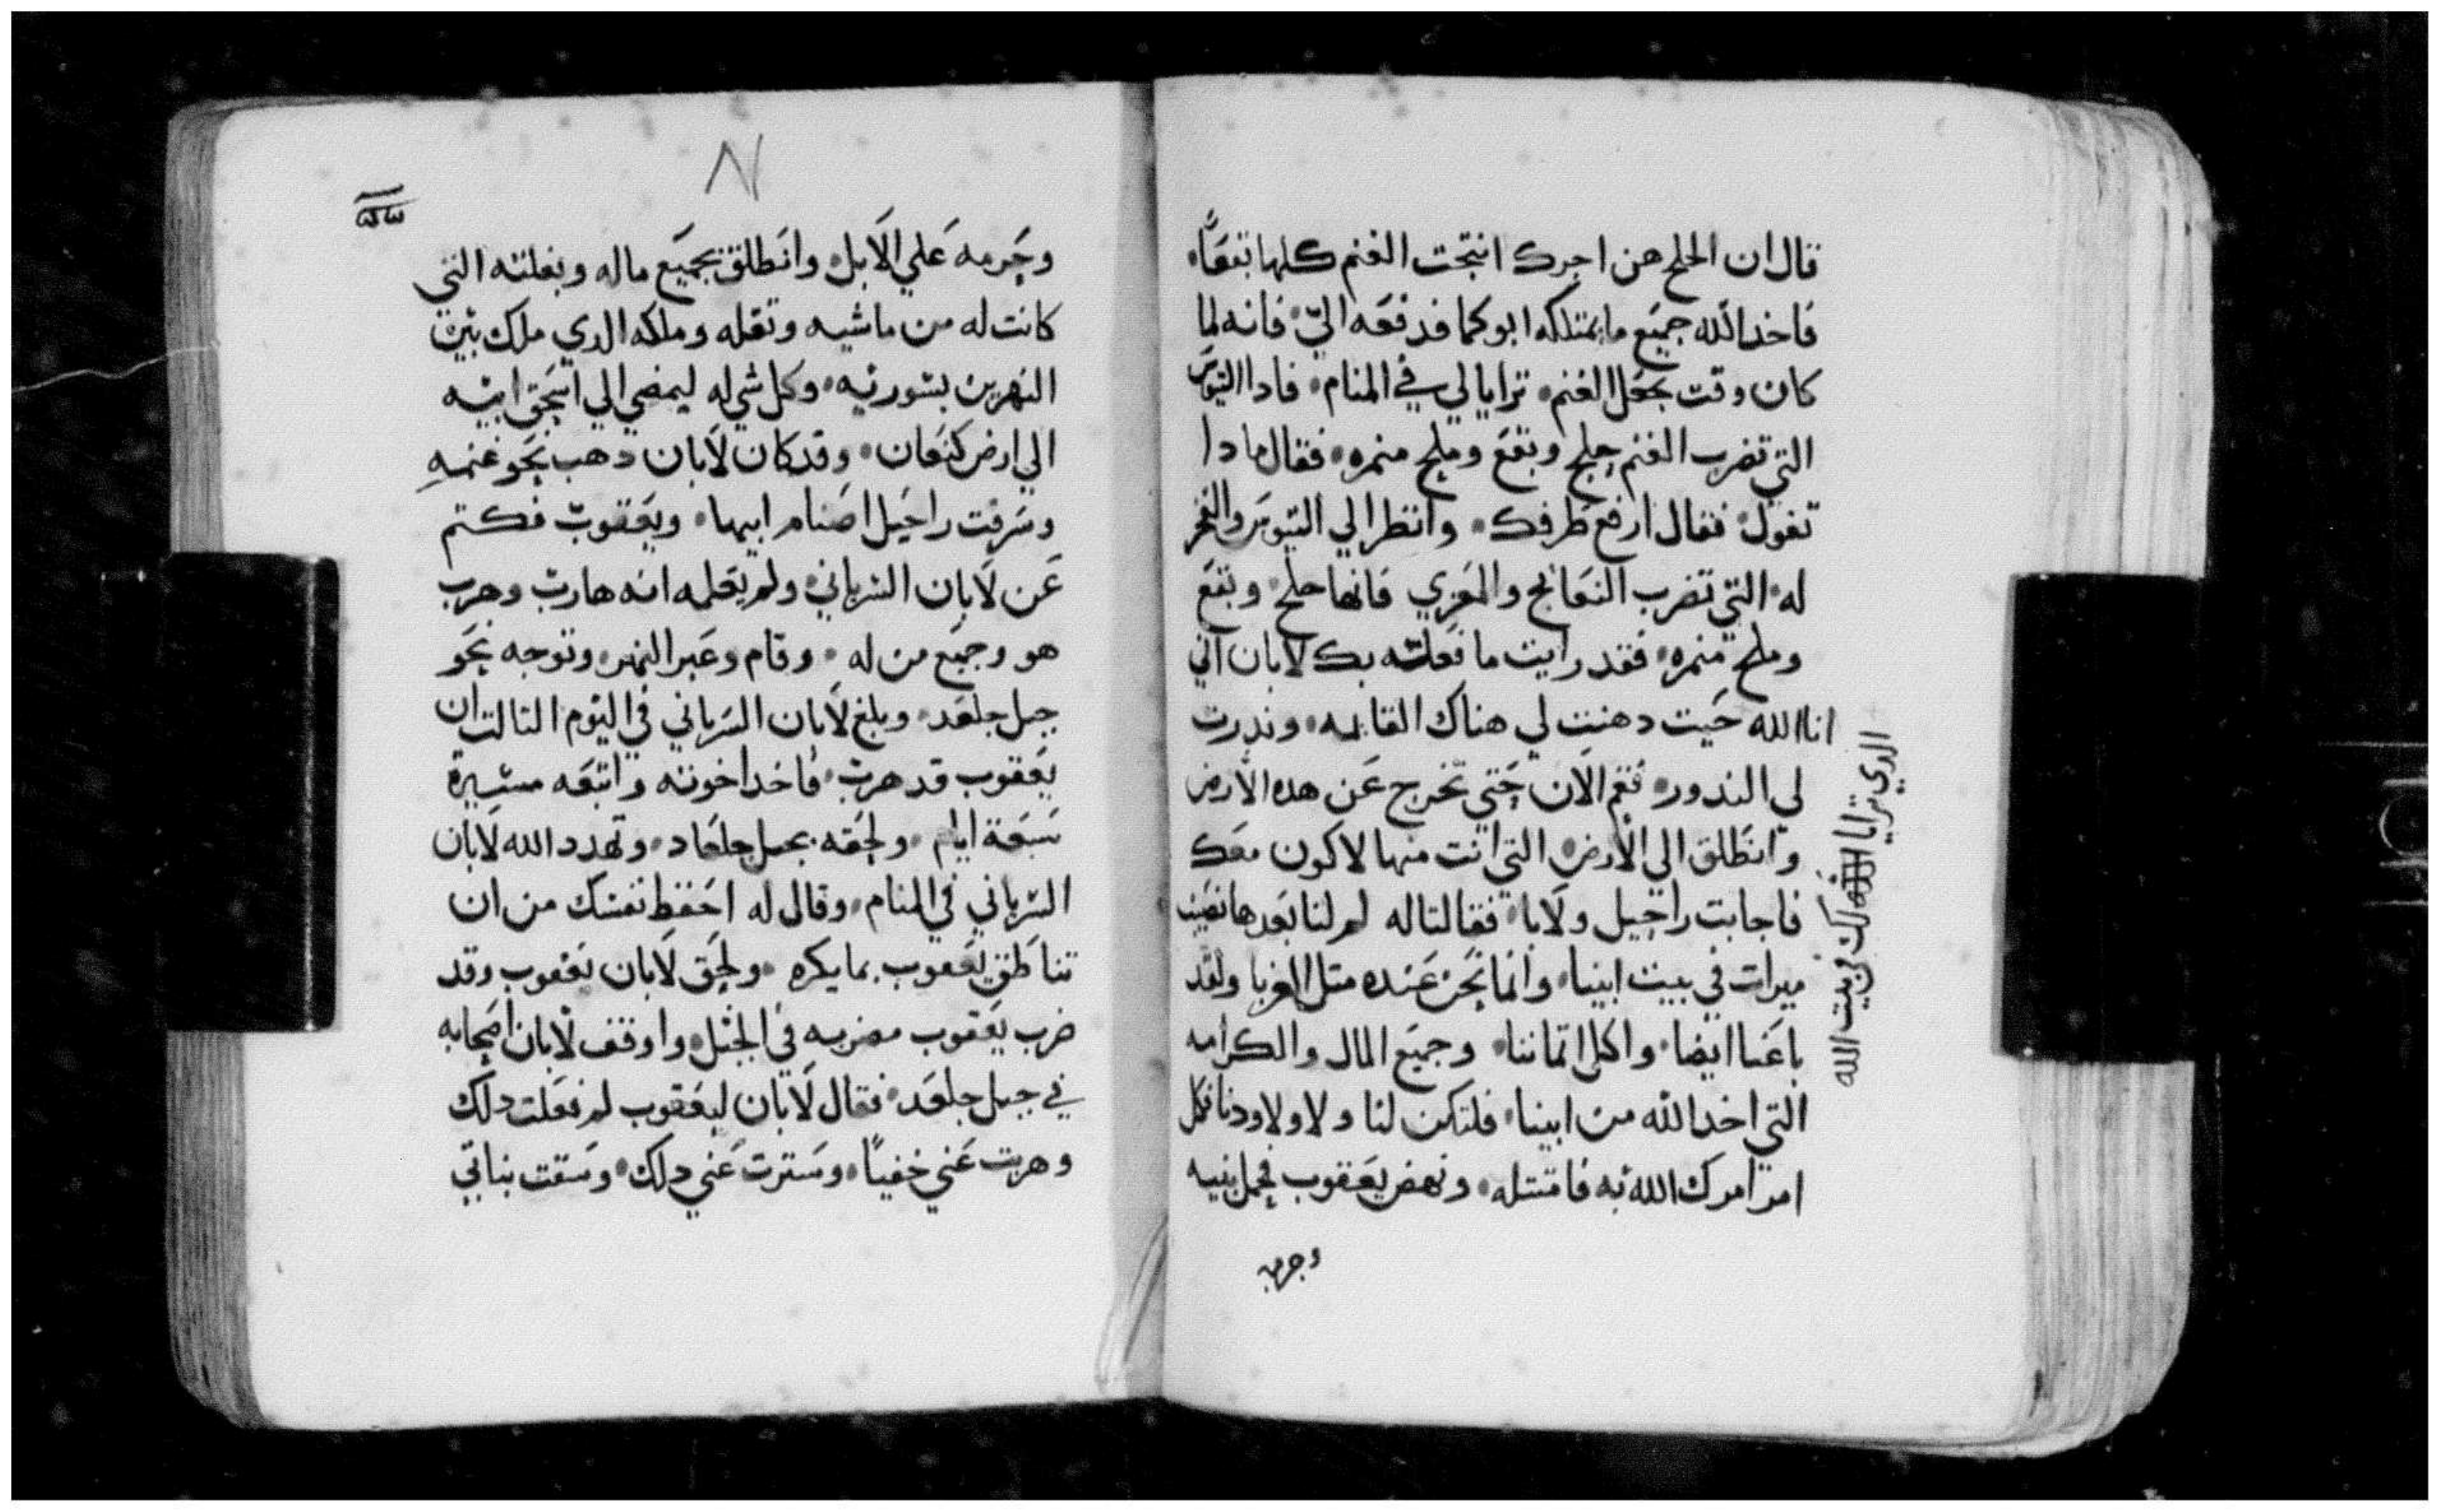 قال ان الجلح هن اجرك انتجت الغنم كلها بتقعًا
فاخد الله جميع ما يمتلكه ابوكما فدفعه اليّ فانه لما
كان وقت بحعل الغنم ترايا لي في المنام فادا التيوس
التي تضرب الغنم جلح وبقع وملح منمره فقال مادا
تقول فقال ارفع طرفك وانظر الي التيوس والفحز
له التي تضرب النعاج والمعزي فانها جلح وبقع
وملح منمره فقد رايت ما فعلته بك لابان اني
انا الله حيت دهنت لي هناك القايمه وندرت
لي الندور فقم الان حتي تخرج عن هده الارض
وانطلق الي الارض التي انت منها لاكون معك
فاجابت راحيل ولايا فقالتا له لم لنا بعدها نصيب
ميرات في بيت ابينا وانما نحن عنده متل الغربا ولقد
باعنا ايضا واكل اتماننا وجميع المال والكرامه
التي اخد الله من ابينا فلتكن لنا ولاولاودنا فكل
امر امرك الله به فامتتله ونهض يعقوب فحمل بنيه
وحرمه
الدي ترايا لك في بيت الله
وحرمه علي الابل وانطلق بجميع ماله وبغلته التي
كانت له من ماشيه وتقله وملكه الدي ملك بين
النهرين بسوريه وكل شي له ليمضي الي اسحق ابيه
الي ارض كنعان وقد كان لابان دهب نحو غنمه
وسرقت راحيل اصنام ابيها ويعقوب فكتم
عن لابان السرياني ولم يعلمه انه هارب وهرب
هو وجميع من له وقام وعبر النهر وتوجه نحو
جبل جلعد وبلغ لابان السرياني في اليوم التالت ان
يعقوب قد هرب فاخد اخوته واتبعه مسيرة
سبعة ايام ولحقه بجبل جلعاد وتهدد الله لابان
السرياني في المنام وقال له احفظ نفسك من ان
تناطق يعقوب بما يكره ولحق لابان يعقوب وقد
ضرب يعقوب مضربه في الجبل واوقف لابان اصحابه
في جبل جلعد فقال لابان ليعقوب لم فعلت دلك
وهربت عني خفيًا وسترت عني دلك وسقت بناتي